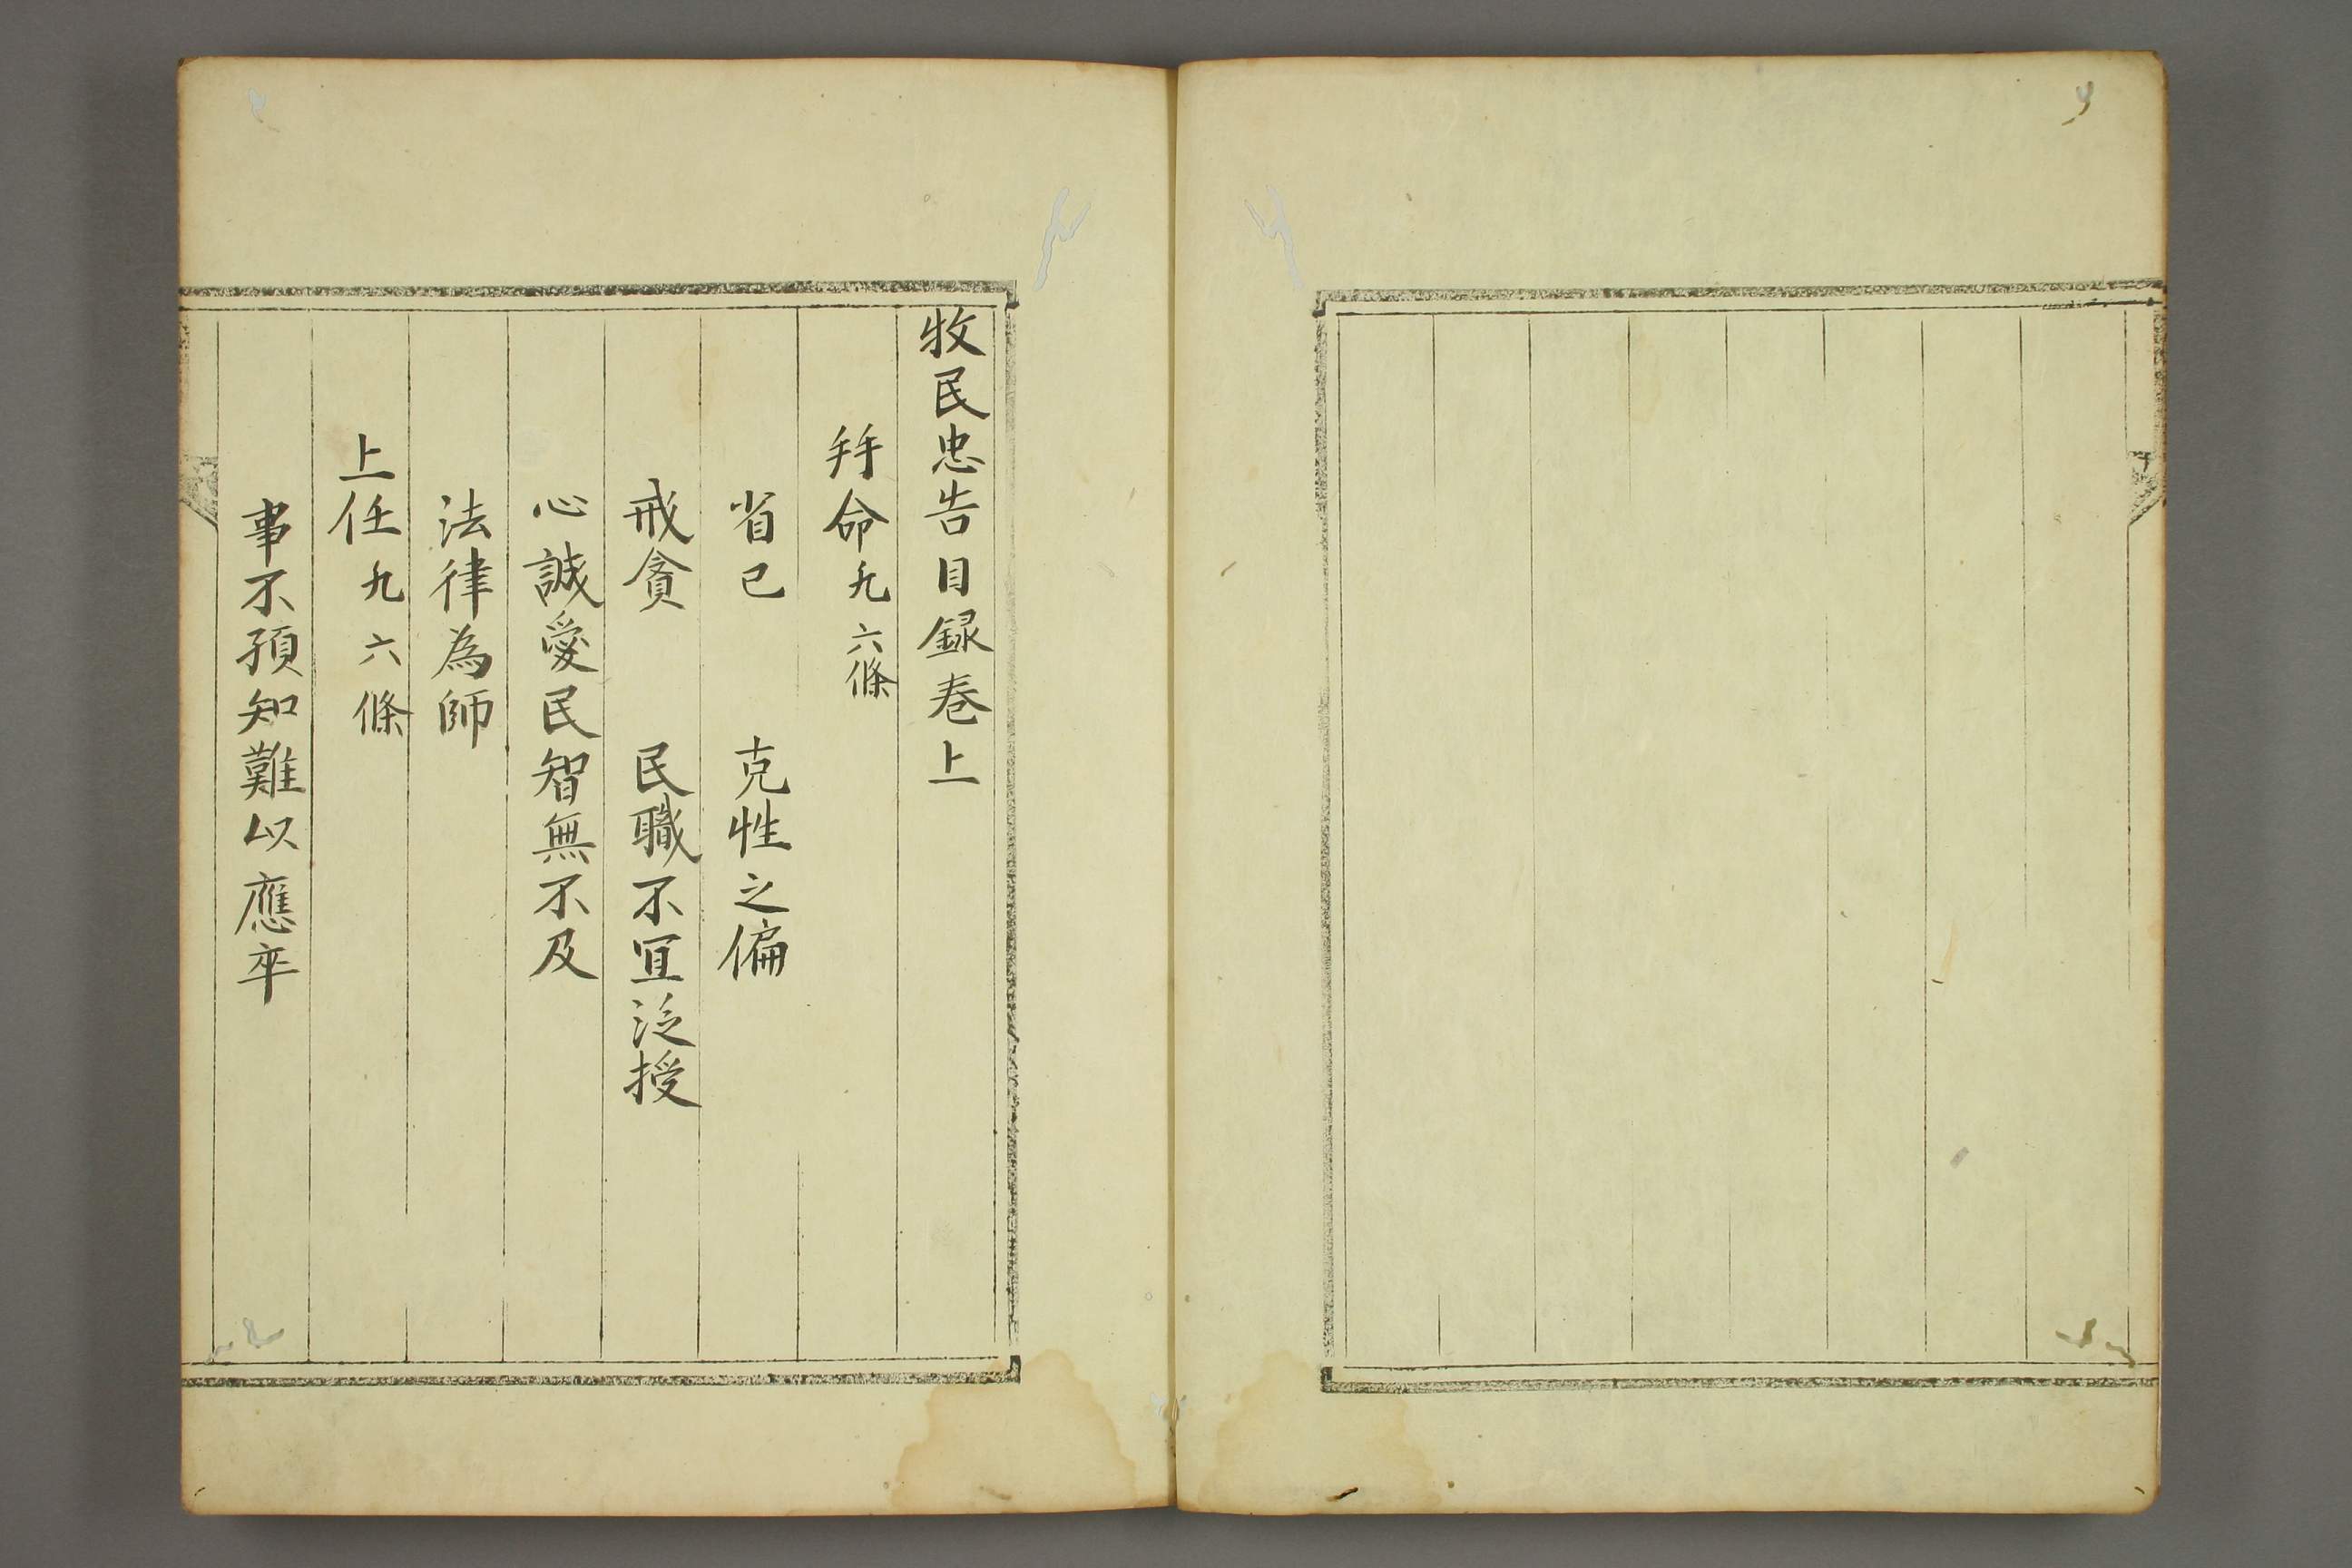 牧民忠告目録巻上
拜命凡六條
省己　克性之偏
戒貪　民職不冝泛授
心誠愛民智無不及
法律為師
上任凡六條
事不預知難以應卒